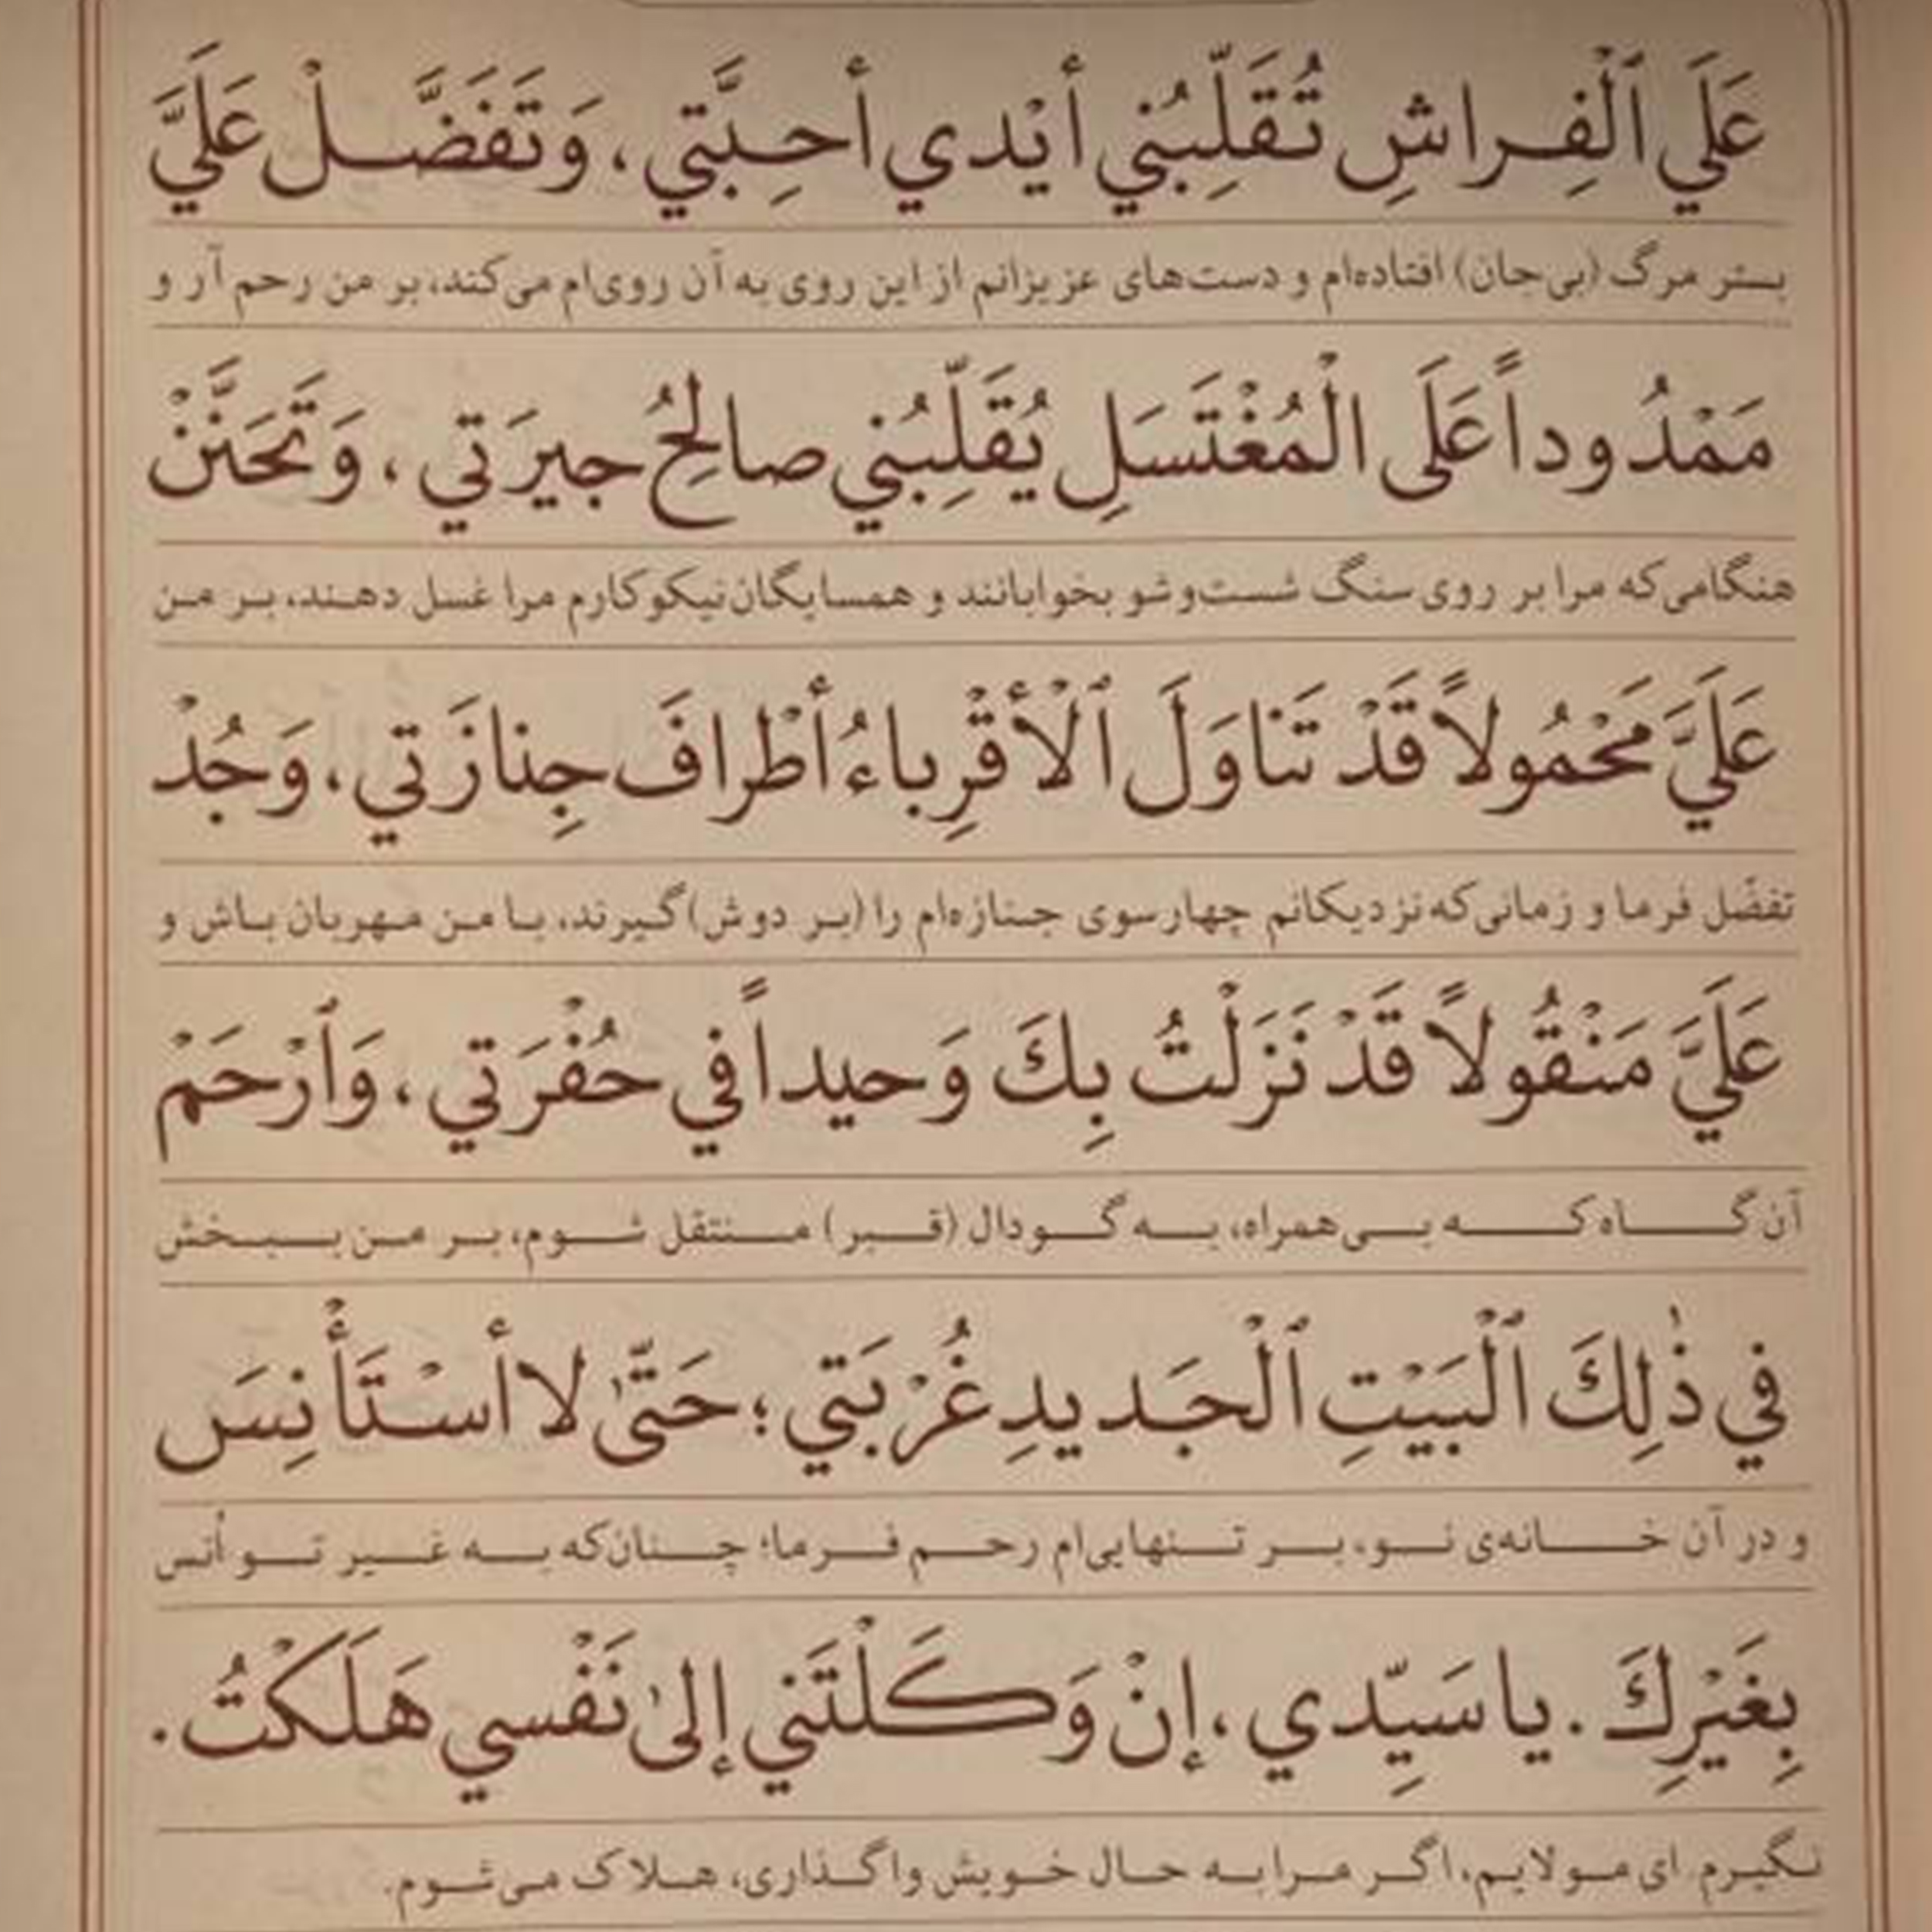 عَلَي ٱلْفِراشِ تُقَلِّبُني أيْدي أحِبَّتي، وَتَفَضَّلْ عَلَيَّ
بستر مرگ (بی‌جان) افتاده‌ام و دست‌های عزیزانم از این روی به آن روی‌ام می‌کند، بر من رحم آر و
مَمْدُوداً عَلَى الْمُغْتَسَلِ يُقَلِّبُني صالِحُ جيرَتي، وَتَحَنَّنْ
هنگامی‌که مرا بر روی سنگ شست‌وشو بخوابانند و همسایگان نیکوکارم مرا غسل دهند، بر من
عَلَيَّ مَحْمُولاً قَدْ تَناوَلَ ٱلْأقْرِباءُ أطْرافَ جِنازَتي، وَجُدْ
تفضّل فرما و زمانی‌که نزدیکانم چهارسوی جنازه‌ام را (بر دوش) گیرند، با من مهربان باش و
عَلَيَّ مَنْقُولاً قَدْ نَزَلْتُ بِكَ وَحيداً في حُفْرَتي، وَٱرْحَمْ
آن گاه که بی‌همراه، به گودال (قبر) منتقل شوم، بر من ببخش
في ذٰلِكَ ٱلْبَيْتِ ٱلْجَديدِ غُرْبَتي؛ حَتّىٰ لا أسْتَأْنِسَ
و در آن خانه‌ی نو، بر تنهایی‌ام رحم فرما؛ چنان‌که به غیر تو اُنس
بِغَيْرِكَ. يا سَيِّدي، إنْ وَكَلْتَني إلىٰ نَفْسي هَلَكْتُ.
نگیرم. ای مولایم، اگر مرا به حال خویش واگذاری، هلاک می‌شوم.